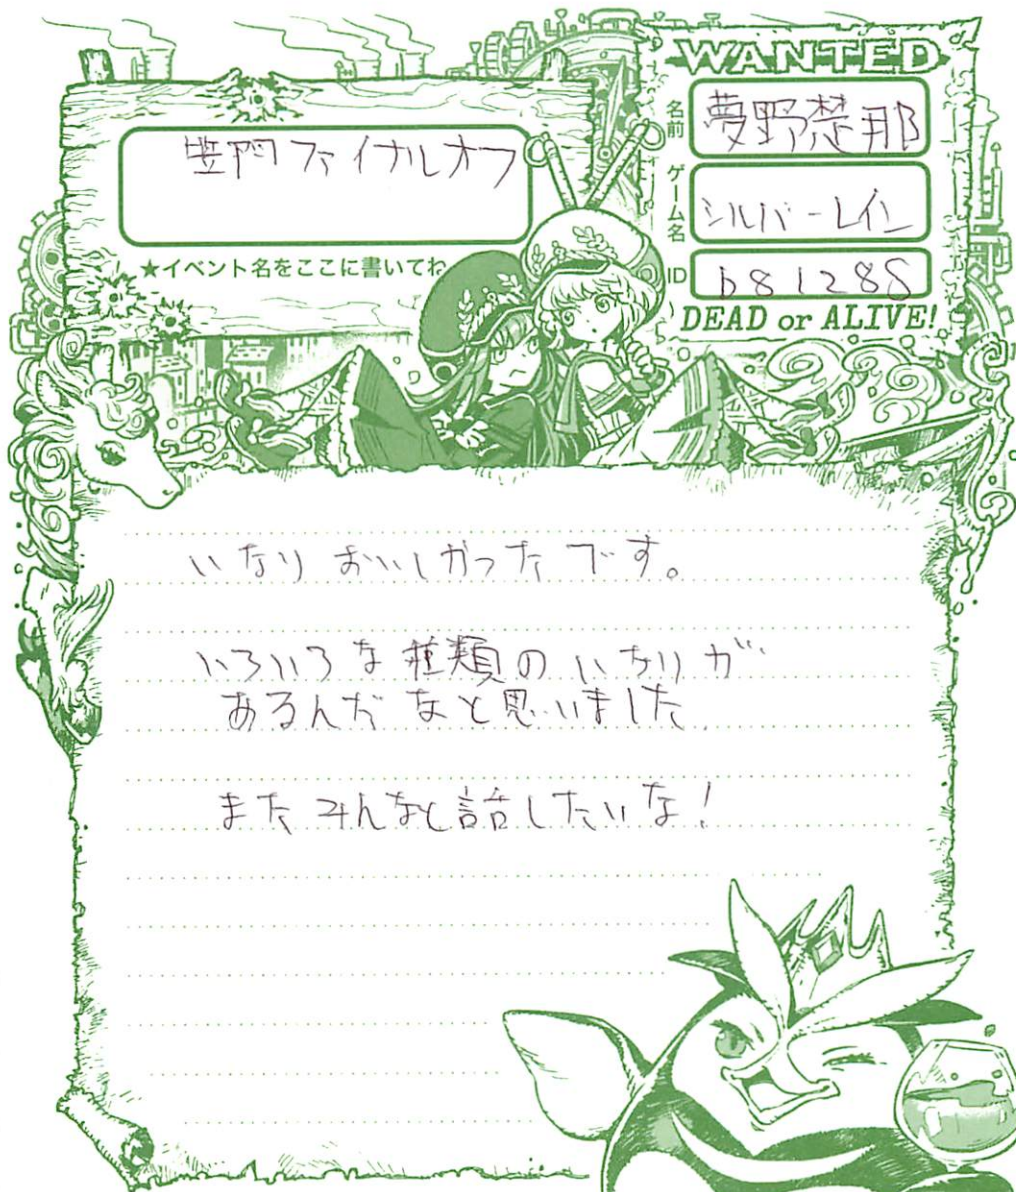 WANTED
笠間ファイナルオフ
★イベント名をここに書いてね
名前
夢野楚那
ゲーム名
シルバーレイン
ID
b81288
DEAD or ALIVE!
いなりおいしかったです。
いろいろな種類のいなりが
あるんだなと思いました
またみんなと話したいな!